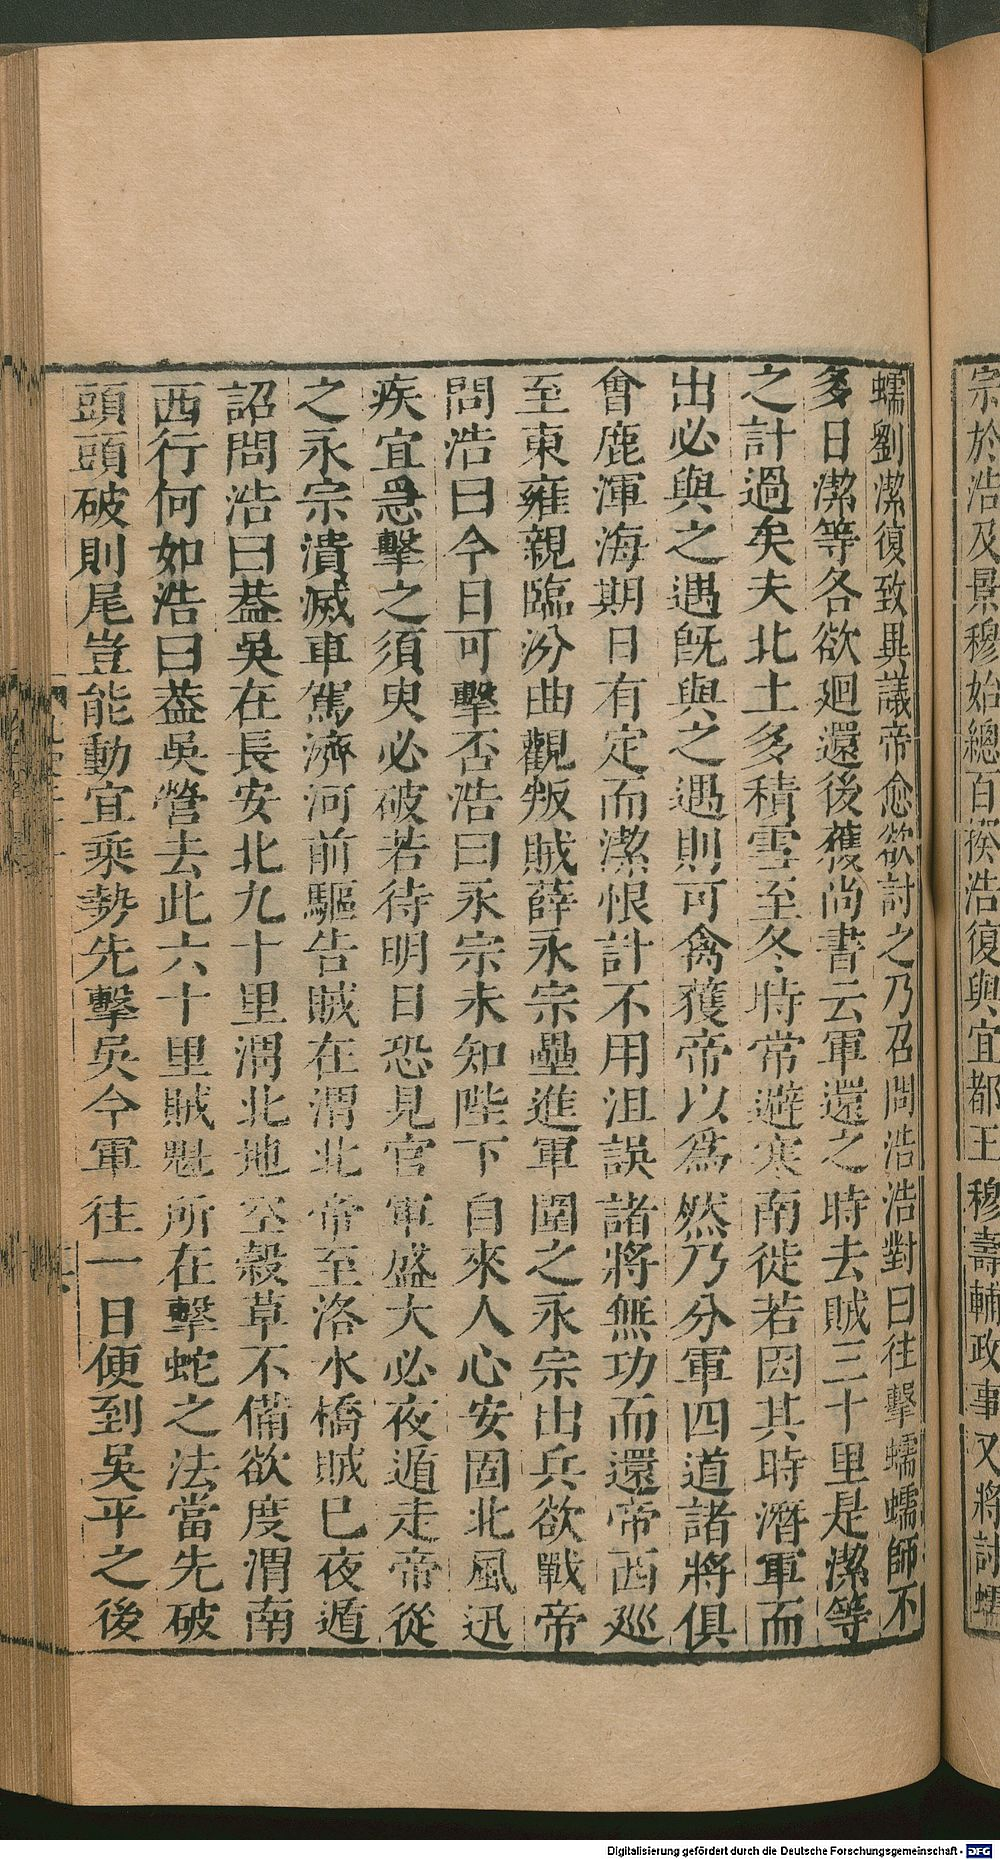 宗於浩及景穆始總百揆浩復與宜都王穆壽輔政事又將討蠕
蠕劉潔復致異議帝愈欲討之乃召問浩浩對曰往擊蠕蠕師不
多日潔等各欲廻還後獲尚書云軍還之時去賊三十里是潔等
之計過矣夫北土多積雪至冬時常避寒南徙若因其時潛軍而
出必與之遇旣與之遇則可禽獲帝以爲然乃分軍四道諸將俱
會鹿渾海期日有定而潔恨計不用沮誤諸將無功而還帝西巡
至東雍親臨汾曲觀叛賊薛永宗壘進軍圍之永宗出兵欲戰帝
問浩曰今日可擊否浩曰永宗未知陛下自來人心安固北風迅
疾宜急擊之須臾必破若待明日恐見官軍盛大必夜遁走帝從
之永宗潰滅車駕濟河前驅告賊在渭北帝至洛水橋賊已夜遁
詔問浩曰葢吳在長安北九十里渭北地空穀草不備欲度渭南
西行何如浩曰葢吳營去此六十里賊魁所在擊蛇之法當先破
頭頭破則尾豈能動宜乘勢先擊吳今軍往一日便到吳平之後
Digitalisierung gefördert durch die Deutsche Forschungsgemeinschaft - DFG